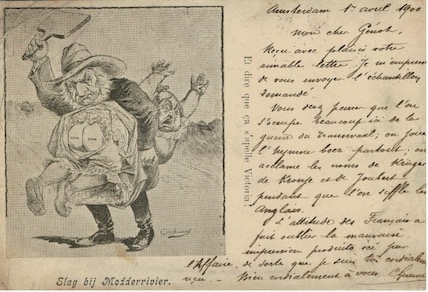 Amsterdam 1er avril 1900
Mon cher Génot,
Reçu avec plaisir votre
aimable lettre. Je m'empresse
de vous envoyer l'échantillon
demandé.
Vous devez penser que l'on
s'occupe beaucoup ici de la
guerre du Transvaal; on joue
l'hymne boer partout; on
acclame les noms de Krüger
de Kronje et de Joubert
pendant que l'on siffle les
Anglais.
L'attitude des Français a
fait oublier la mauvaise
impression produite ici par
l'Affaire, de sorte que je suis très cordialement
reçu. - Bien cordialement à vous
Et dire que ça s'apelle Victoria
Slag bij Modderrivier.